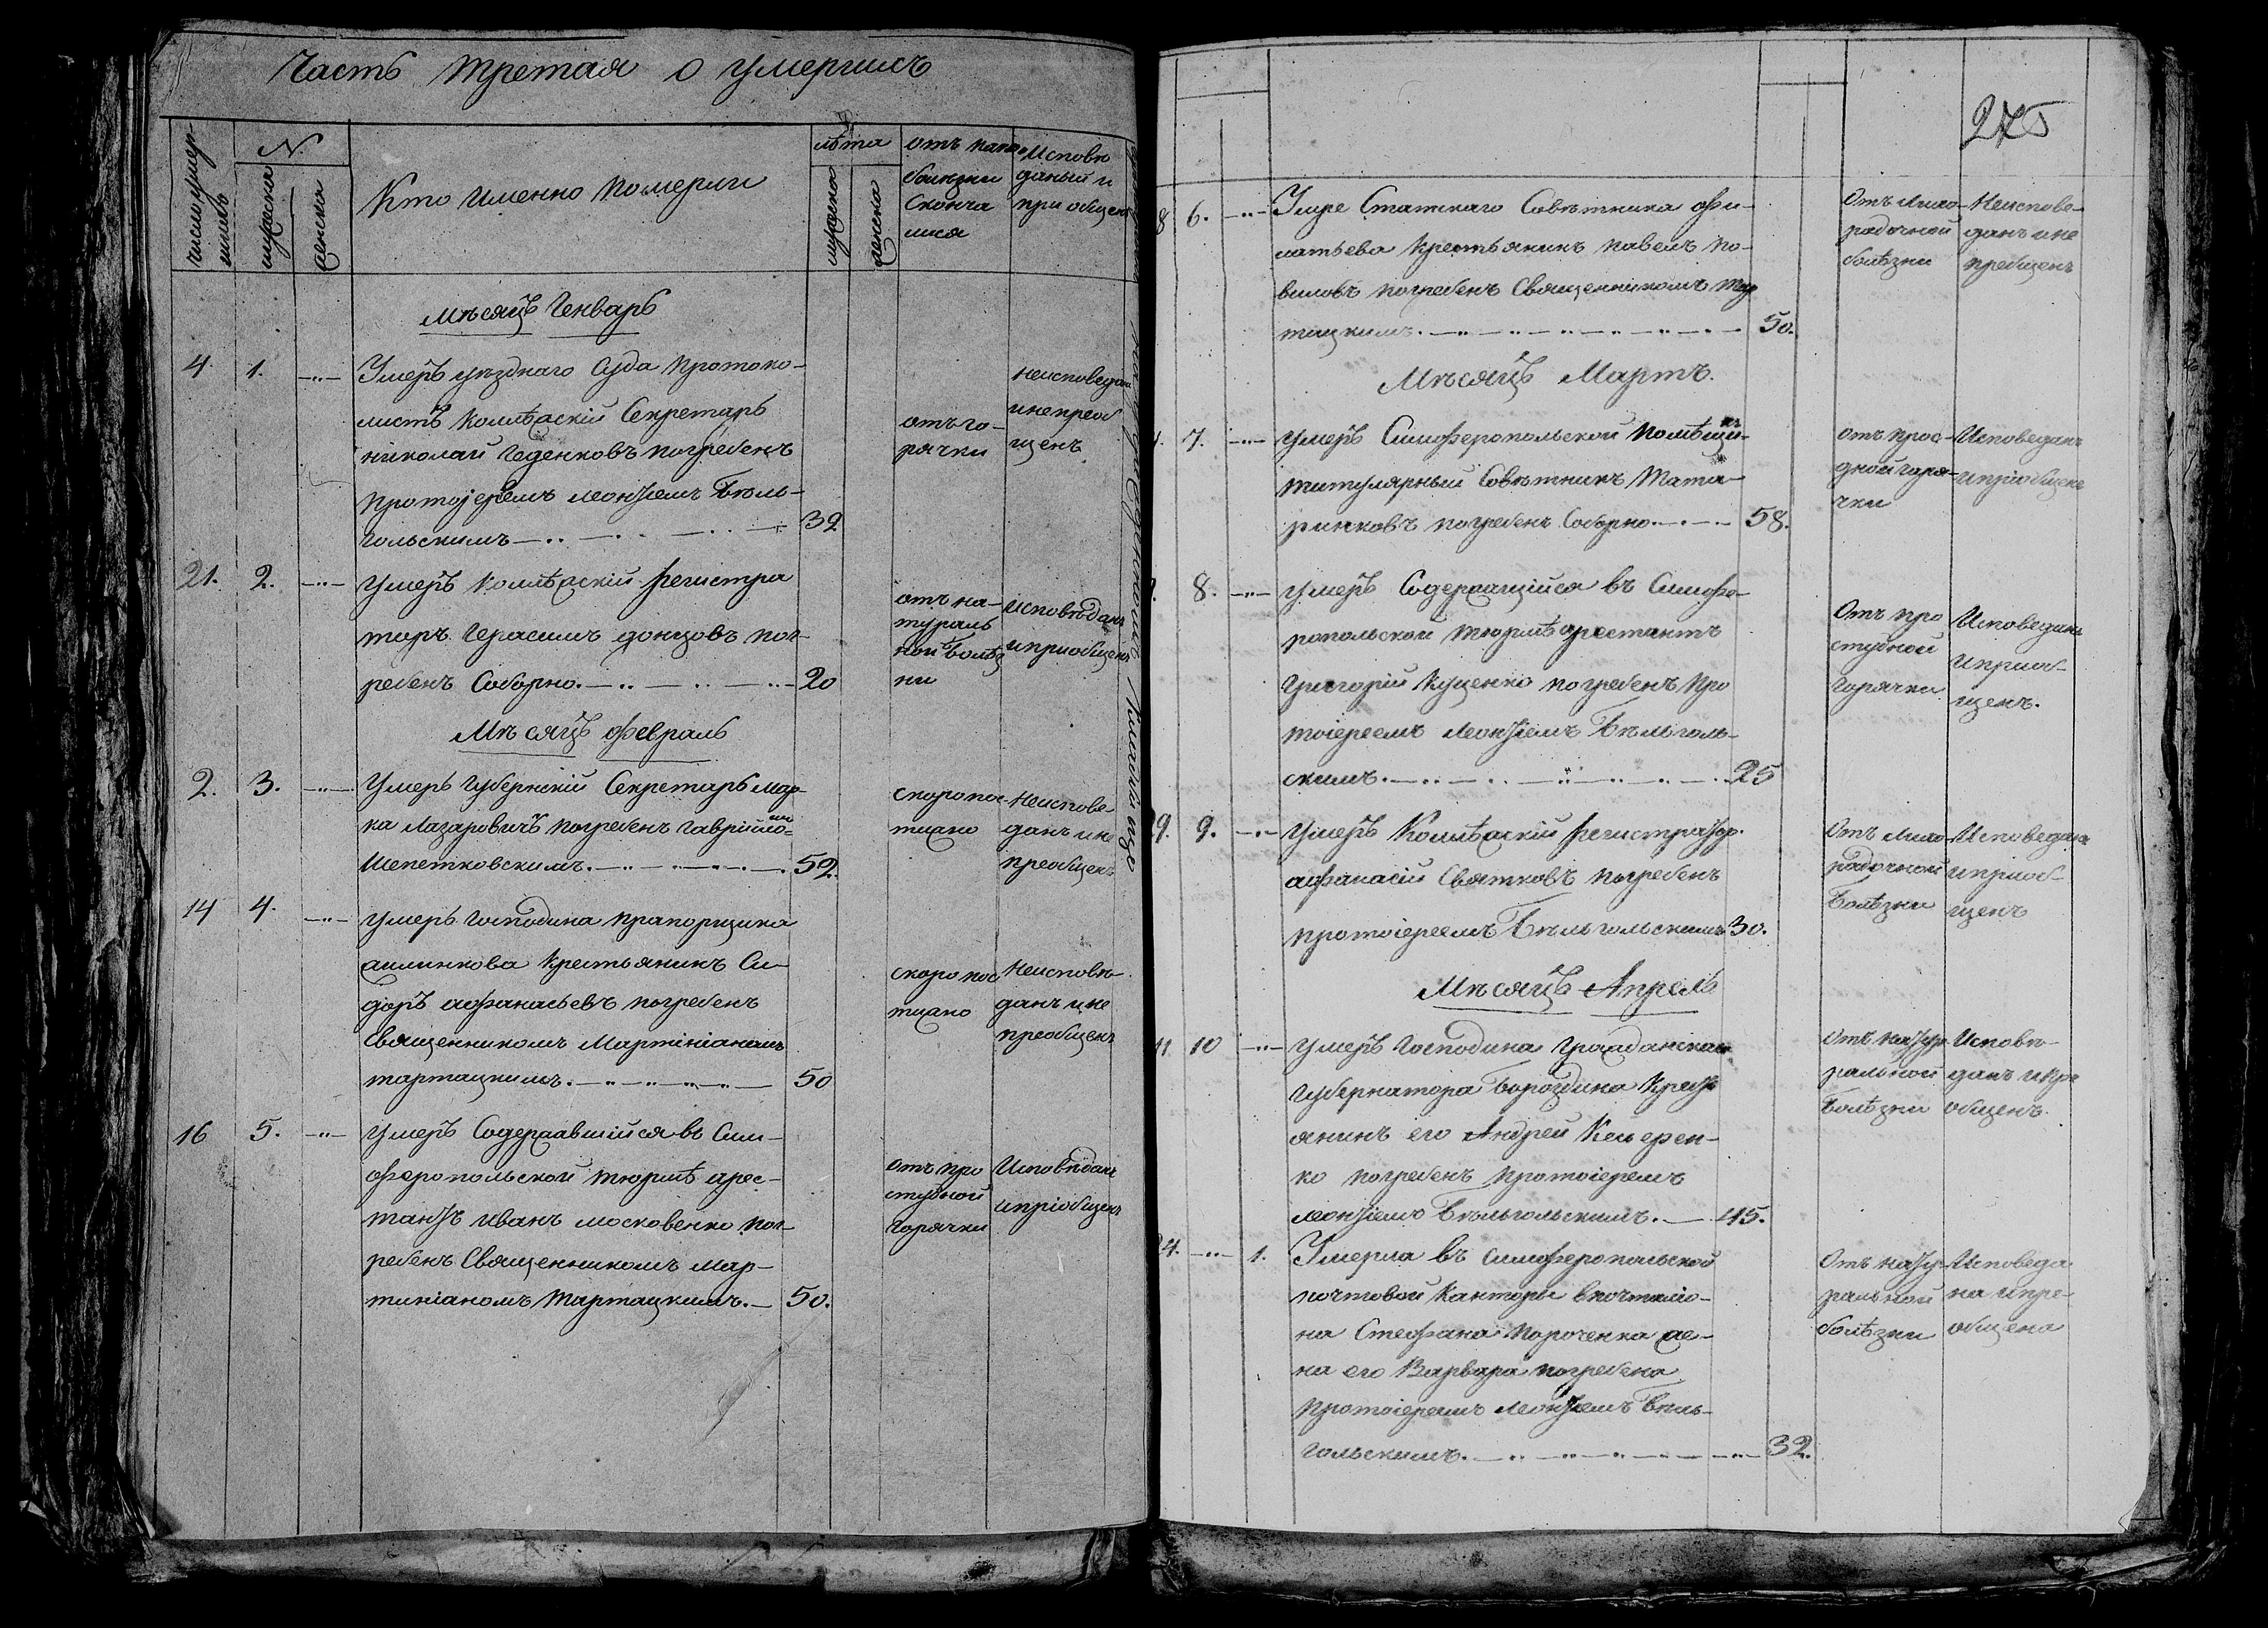 Часть третая о умершихъ
число умер-
шихъ
N.
мужеска
женска
Кто именно померли
лѣта
мужеска
женска
отъ какой
болѣзни
Сконча
лися
Исповѣ
даный и
при общенъ
Мѣсяцъ Генварь
4. 1. Умеръ уѣзднаго Суда Протоко-
листъ Коллѣжскій Секретарь
николай Геденковъ погребенъ
протоіереемъ леонтіемъ Бѣль-
гольскимъ 32
отъ го-
рячки
неисповедан
инепреоб
щенъ
21. 2. умеръ Коллѣжскій регистра
торъ Герасимъ донцовъ пог-
ребенъ Соборно. 20
отъ на-
тураль
ной болѣз
ни
исповѣданъ
иприобщенъ
Мѣсяцъ февраль
2. 3. Умеръ Губернскій Секретарь мар-
ка Лазаровичъ погребенъ гавріило-
мъ
Шепетковскимъ. 52.
скоропос
тижно
Неисповѣ-
данъ и не
преобщенъ
14 4. умеръ Господина прапорщика
ашлинкова Крестьянинъ Си-
доръ афанасьевъ погребенъ
Священникомъ Мартініаномъ
тартацкимъ. 50
скоро пос
тижно
Неисповѣ-
данъ и не
преобщенъ
16 5. умеръ Содержавшійся въ Сим-
феропольской тюрмѣ арес-
тантъ иванъ московенко пог-
ребенъ Священникомъ мар-
тиніаномъ тартацкимъ. 50.
отъ про
студной
горячки
Исповѣданъ
ипріобщенъ
275
8 6. Умре Статскаго Совѣтника фи-
латьева крестьянинъ павелъ по-
виловъ погребенъ Священникомъ тар
тацкимъ. 50.
Отъ лихо-
радочной
болѣзни
Неисповѣ-
данъ и не
преобщенъ
Мѣсяцъ Мартъ.
7. умеръ Симферопольской помѣщи-
къ
титулярный Совѣтникъ Тата-
ринковъ погребенъ Соборно. 58.
отъ прос-
дной горя-
чки
Исповеданъ
ипріобщенъ
8. умеръ Содержащійся въ Симфе-
ропольской тюрмѣ арестантъ
Григорій Куценко погребенъ про
тоіереемъ леонтіемъ Бѣльголь-
скимъ. 25
Отъ про
студной
горячки
Исповеданъ
иприоб-
щенъ.
9. 9. Умеръ Коллѣжскій регистраторъ.
афанасій Святковъ погребенъ
протоіереемъ Бѣльгольскимъ 30.
Отъ лихо-
радочной
Болѣзни
Исповеданъ
иприоб-
щенъ
Мѣсяцъ Апрель
11 10 умеръ Господина Гражданскаго
Губернатора Бороздина крест
янинъ его Андрей Кечерен-
ко погребенъ протоіереемъ
леонтіемъ Бѣльгольскимъ. 45.
Отъ нату-
ральной
болѣзни
Исповѣ-
данъ ипре
общенъ.
24. 1. Умерла въ симферопольской
почтовой Канторы впочталіо-
на Стефана Пороченка же-
на его Варвара погребена
протоіереемъ леонтіемъ Бѣль-
гольскимъ. 32.
Отъ нату-
ральной
болѣзни
Исповеда-
на ипре-
общена